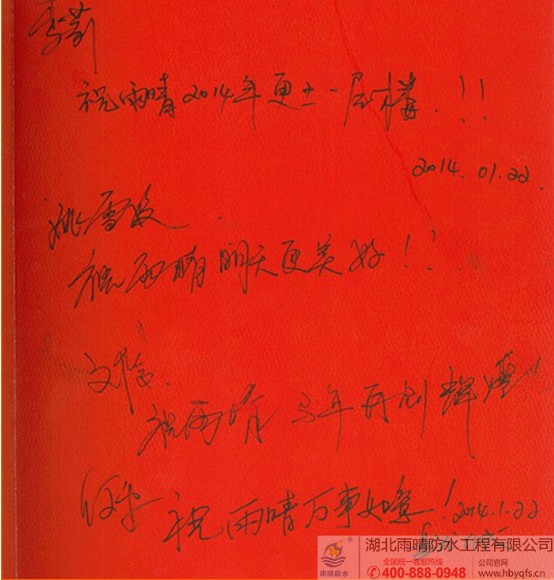 祝雨晴2014年更上一层楼.!!
2014.01.22.
姚雪
祝雨晴明天更美好!!
祝雨晴马年再创辉煌
祝雨晴万事如意!2014.1.22
雨晴防水
湖北雨晴防水工程有限公司
全国统一客服热线
400-888-0948
公司官网
www.hbyqfs.cn